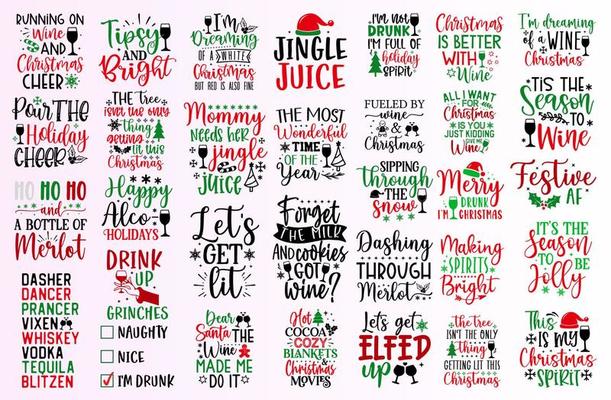 RUNNING ON
Wine
AND
Christmas
CHEER
Tipsy
AND
Bright
I'm
DREAMING
OF A WHITE
Christmas
BUT RED IS ALSO FINE
JINGLE
JUICE
I'M NOT
DRUNK
I'M FULL OF
holiday
SPIRIT
Christmas
IS BETTER
WITH
Wine
I'm dreaming
of a WINE
Christmas
Pour THE
Holiday
CHEER
THE Tree
isn't the only
thing
getting lit
this
Christmas
Mommy
NEEDS HER
jingle
JUICE
THE MOST
Wonderful
TIME
OF THE
Year
FUELED BY
wine
&
Christmas
ALL I WANT
FOR
Christmas
IS YOU
JUST KIDDING
GIVE ME
Wine
'TIS THE
Season
TO
Wine
HO HO HO
and
A BOTTLE OF
Merlot
Happy
Alco
HOLIDAYS
Let's
GET
lit
Forget
THE MILK
AND cookies
GOT
wine?
SIPPING
Through
THE
Snow
Merry
DRUNK
I'M CHRISTMAS
Festive
AF
DASHER
DANCER
PRANCER
VIXEN
WHISKEY
VODKA
TEQUILA
BLITZEN
DRINK
UP
GRINCHES
NAUGHTY
NICE
I'M DRUNK
Dear
Santa THE
Wine
MADE ME
DO IT
Hot
COCOA
COZY
BLANKETS
&
Christmas
MOVIES
Dashing
THROUGH
Merlot
Let's get
ELFED
up
Making
SPIRITS
Bright
The tree
ISN'T THE ONLY
Thing
GETTING LIT THIS
Christmas
IT'S THE
Season
TO BE
Jolly
This
IS MY
Christmas
SPIRIT